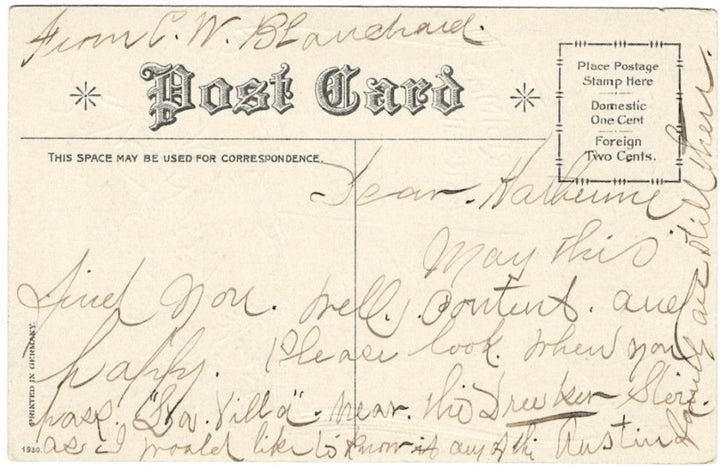 From C. W. Blanchard.
Post Card
Place Postage
Stamp Here
Domestic
One Cent
Foreign
Two Cents.
THIS SPACE MAY BE USED FOR CORRESPONDENCE.
Dear Katherine
May this
find you. well, content. and
happy. Please look. when you
pass. "La. Villa". near. the Store.
as I would like to know if any of the Austin
family are still there.
PRINTED IN GERMANY.
1930.